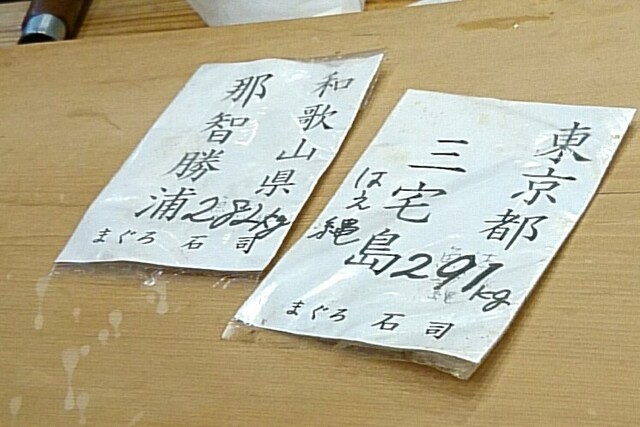 和歌山県
那智勝浦
282kg
まぐろ 石司
東京都
三宅島
はえ縄
291kg
まぐろ 石司